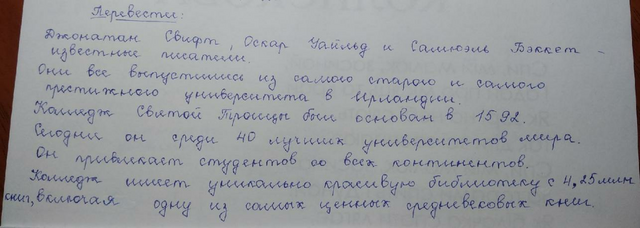 Перевести:
Джонатан Свифт, Оскар Уайльд и Самюэль Бэккет -
известные писатели.
Они все выпустились из самого старого и самого
престижного университета в Ирландии.
Колледж Святой Троицы был основан в 1592.
Сегодня он среди 40 лучших университетов мира.
Он привлекает студентов со всех континентов.
Колледж имеет уникально красивую библиотеку с 4,25 млн
книг, включая одну из самых ценных средневековых книг.